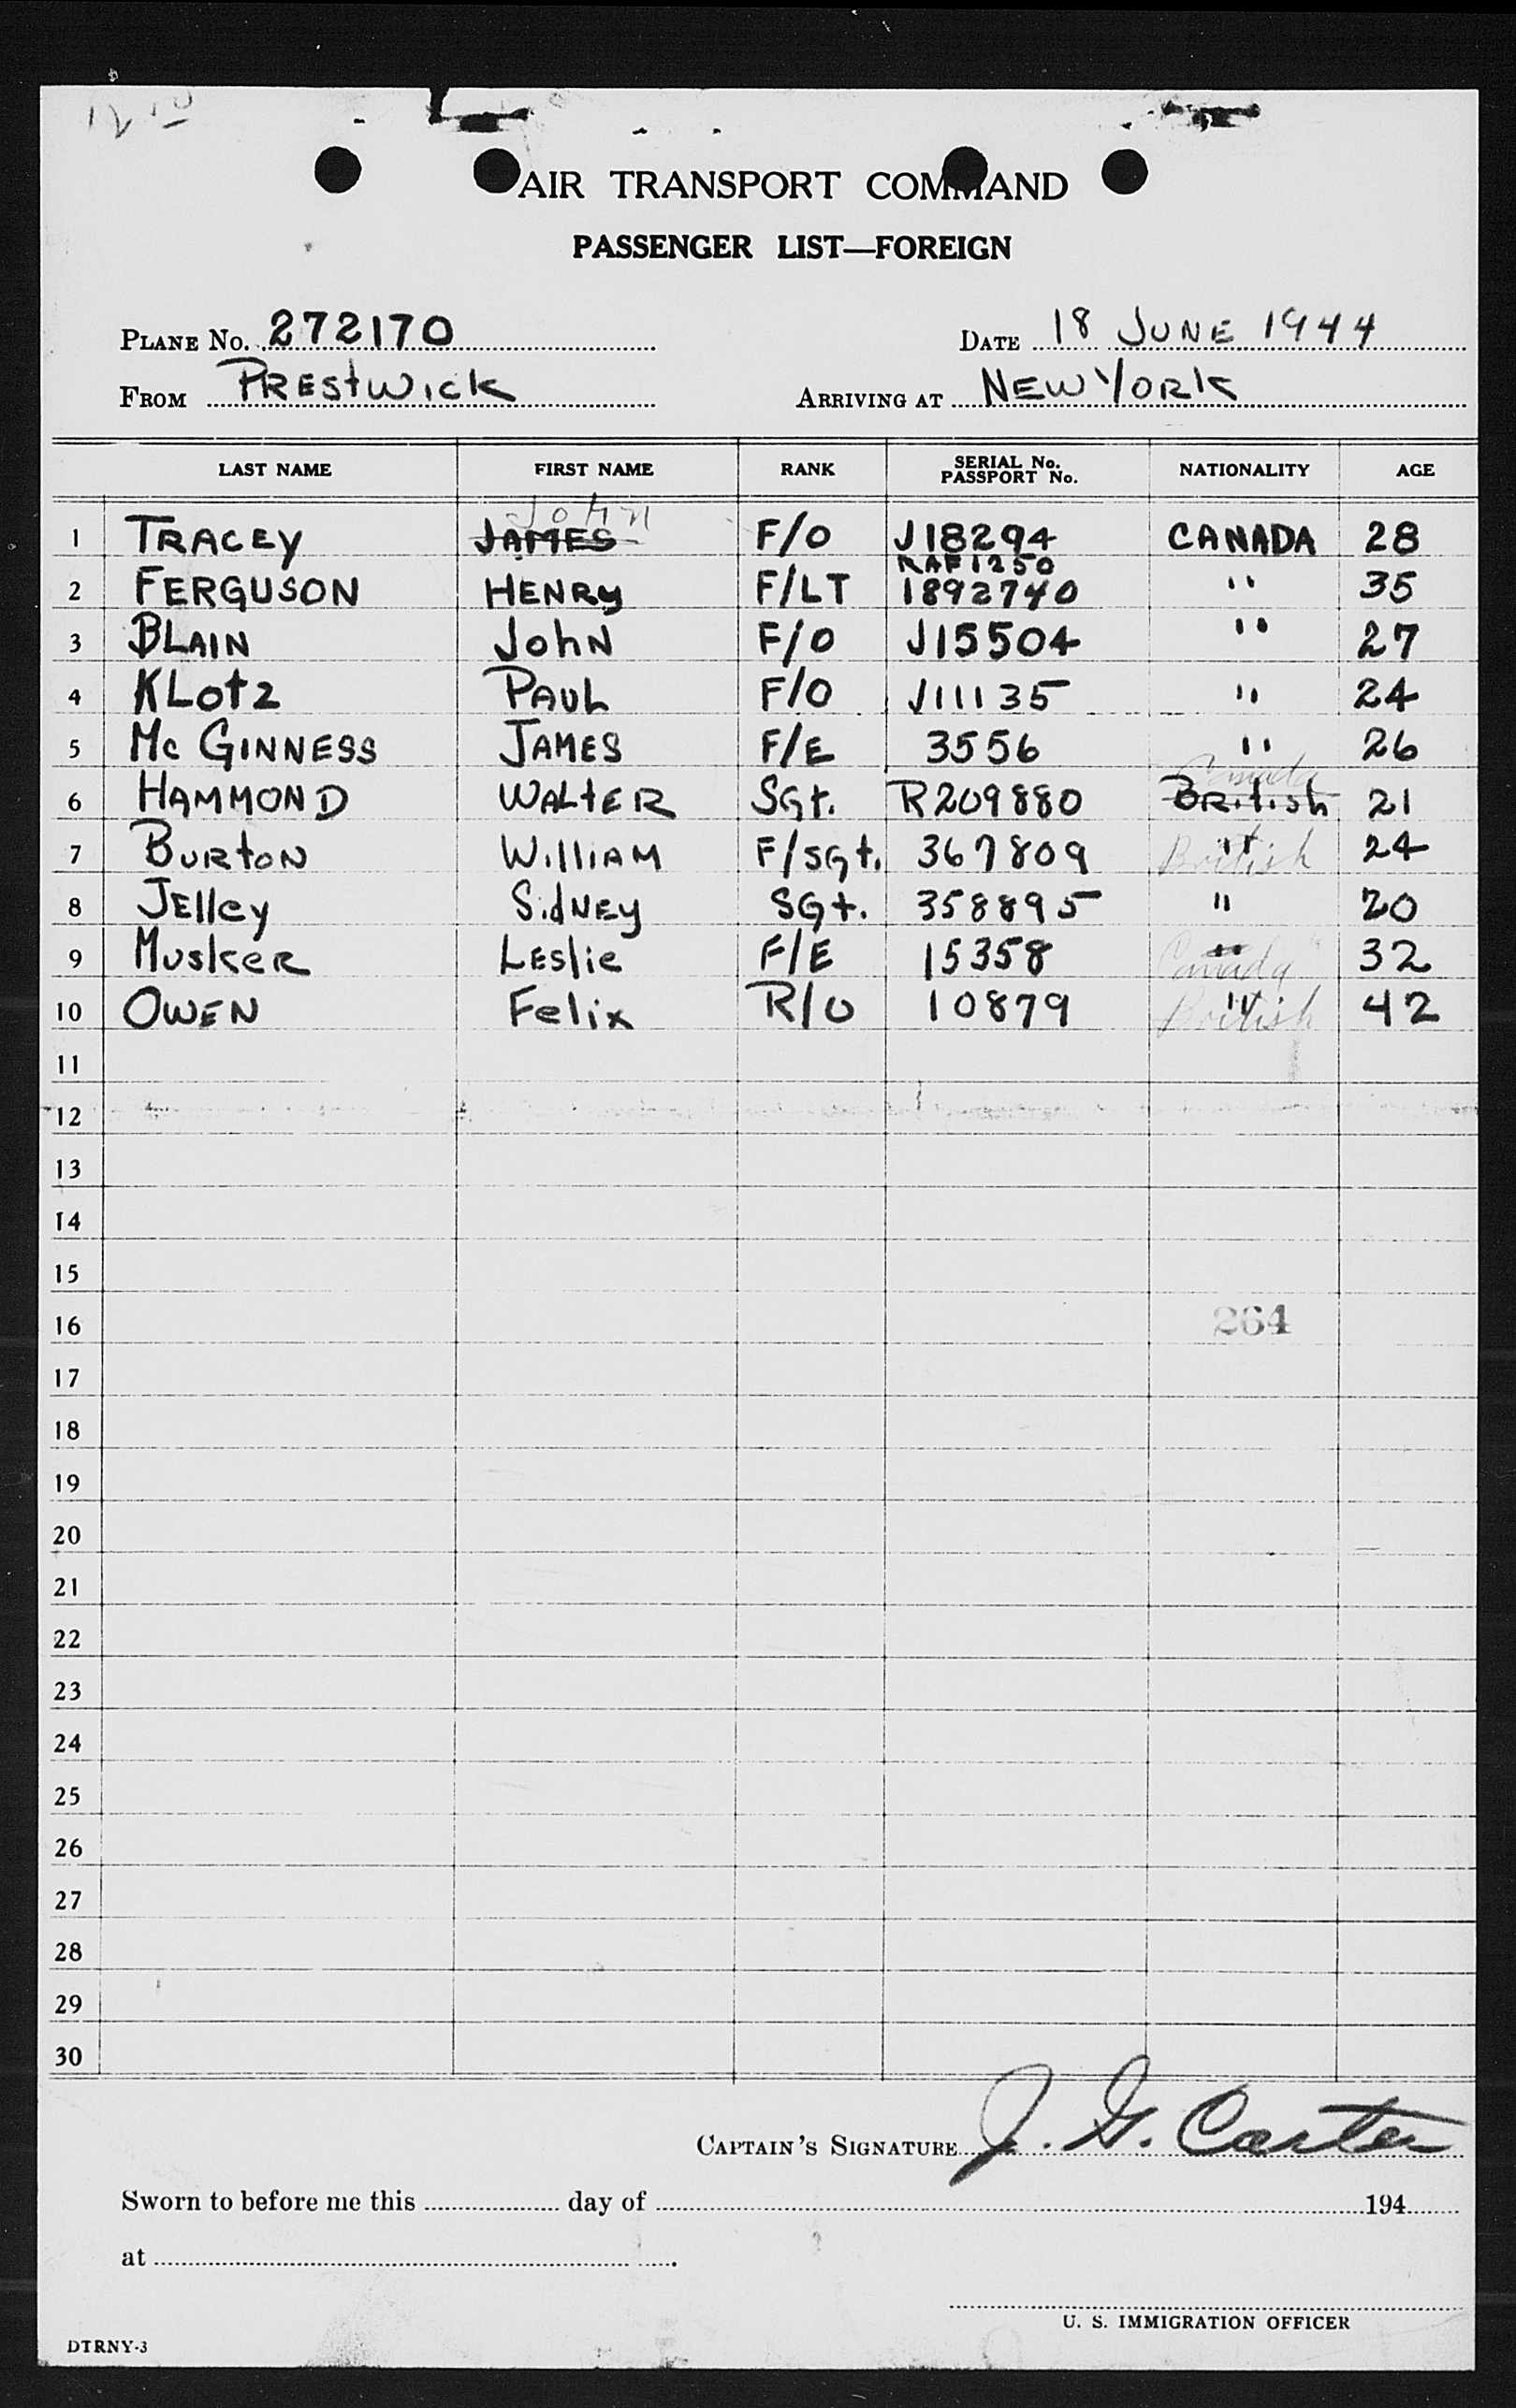 AIR TRANSPORT COMMAND
PASSENGER LIST—FOREIGN
PLANE No. 272170 DATE 18 JUNE 1944
FROM PRESTWICK ARRIVING AT NEW YORK
LAST NAME FIRST NAME RANK SERIAL No. PASSPORT No. NATIONALITY AGE
John
1 TRACEY JAMES F/O J18294 CANADA 28
RAF1250
2 FERGUSON HENRY F/LT 1892740 " 35
3 BLAIN JOHN F/O J15504 " 27
4 KLOTZ PAUL F/O J11135 " 24
5 Mc GINNESS JAMES F/E 3556 " 26
Canada
6 HAMMOND WALTER Sgt. R209880 British 21
7 BURTON WILLIAM F/sgt. 367809 " British 24
8 JELLEY SIDNEY SGt. 358895 " 20
9 MUSKER LESLIE F/E 15358 " Canada 32
10 OWEN FELIX R/O 10879 " British 42
11
12
13
14
15
16 264
17
18
19
20
21
22
23
24
25
26
27
28
29
30
CAPTAIN'S SIGNATURE J. G. Carter
Sworn to before me this day of 194
at
U. S. IMMIGRATION OFFICER
DTRNY-3